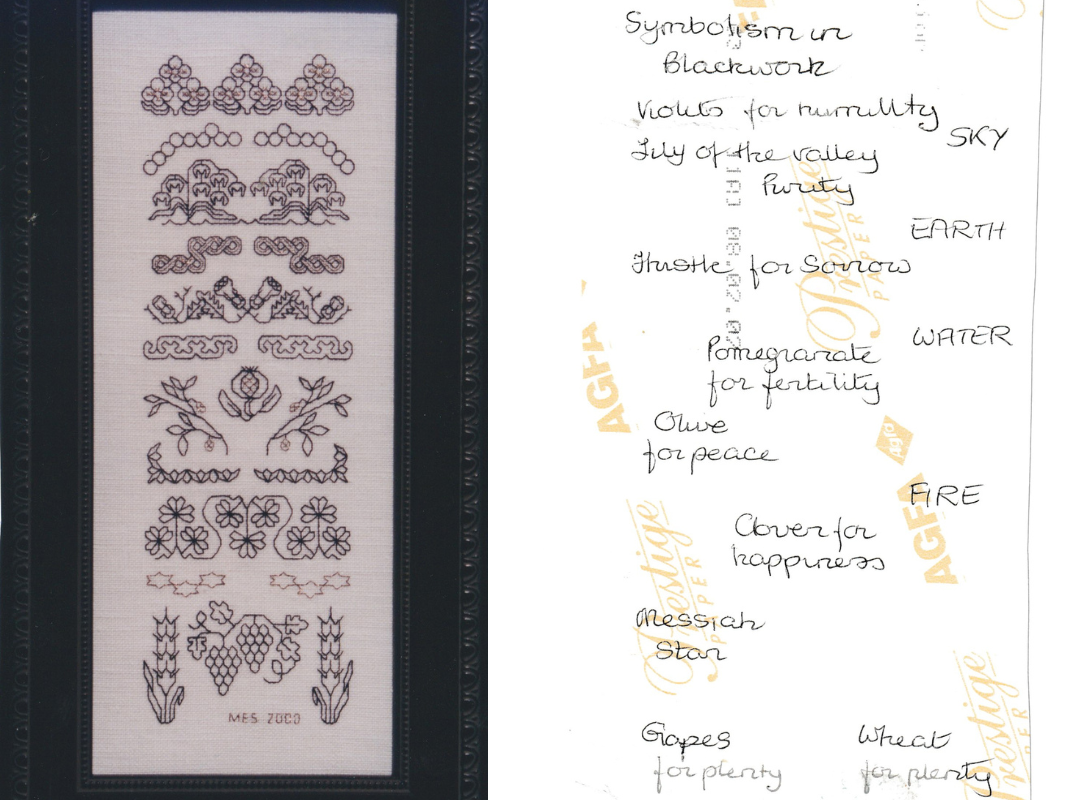 MES 2000
Symbolism in
Blackwork
Violets for humility
SKY
Lily of the valley
Purity
EARTH
Thistle for Sorrow
WATER
Pomegranate
for fertility
Olive
for peace
FIRE
Clover for
happiness
Messiah
Star
Grapes
for plenty
Wheat
for plenty
AGFA
Prestige
PAPER
Agfa
AGFA
Prestige
PAPER
Prestige